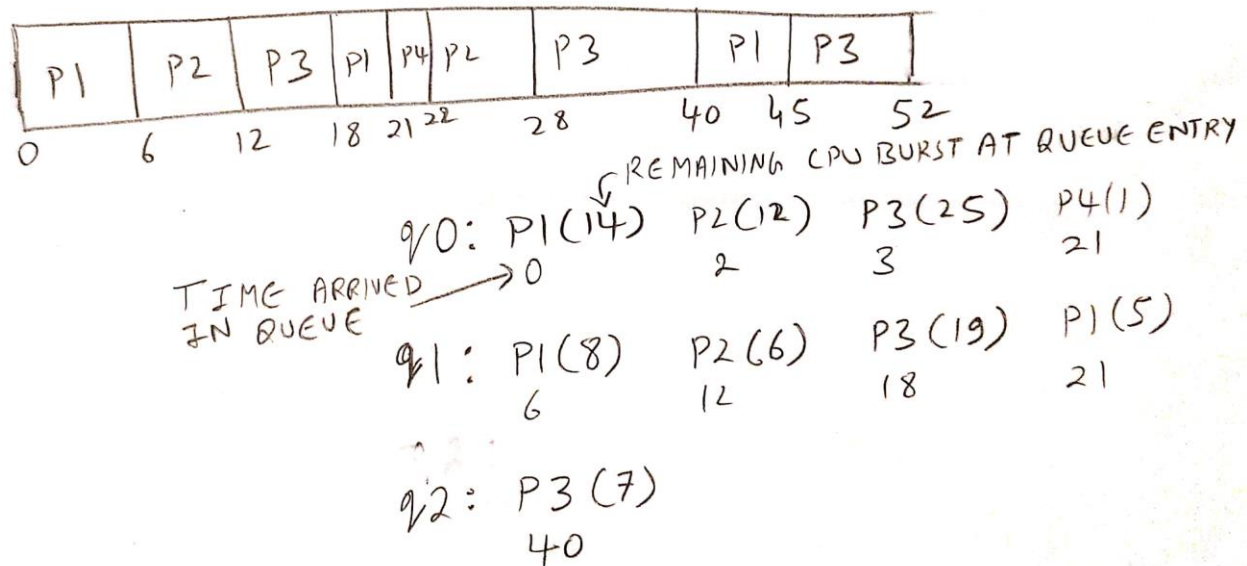 P1 P2 P3 P1 P4 P2 P3 P1 P3
0 6 12 18 21 22 28 40 45 52
REMAINING CPU BURST AT QUEUE ENTRY
q0: P1(14) P2(12) P3(25) P4(1)
TIME ARRIVED IN QUEUE 0 2 3 21
q1: P1(8) P2(6) P3(19) P1(5)
6 12 18 21
q2: P3(7)
40